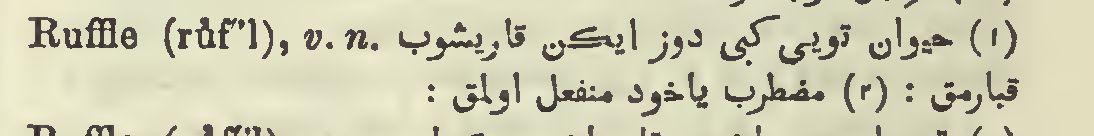 Ruffle (rŭf″l), v. n. (١) حیوان تویی کبی دوز ایکن قاریشوب
قبارمق : (٢) مضطرب یاخود منفعل اولمق :